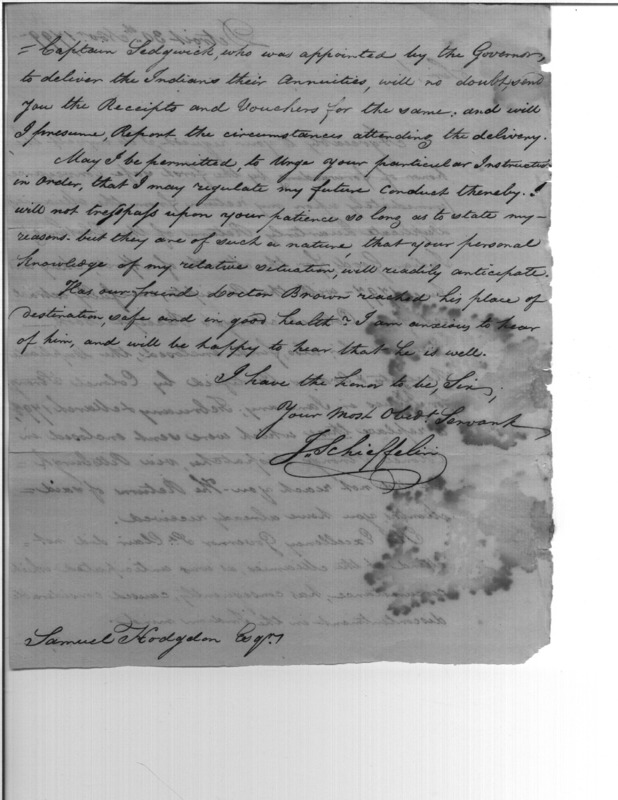 = Captain Sedgwick, who was appointed by the Governor,
to deliver the Indians their Annuities, will no doubt, send
you the Receipts and Vouchers for the same: and will
I presume, Report the circumstances attending the delivery.
May I be permitted, to Urge your particular Instructions
in Order, that I may regulate my future Conduct thereby. I
will not tresspass upon your patience so long as to state my
reasons. but they are of such a nature, that your personal
Knowledge of my relative situation, will readily anticipate.
Has our friend Doctor Brown reached his place of
destination, safe and in good health? I am anxious to hear
of him, and will be happy to hear that he is well.
I have the honor to be, Sir,
Your Most Obedt Servant
J. Schieffelin
Samuel Hodgdon Esqr